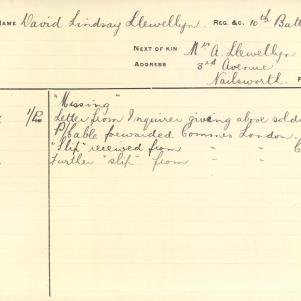 NAME David Lindsay Llewellyn. REG. &C. 10th Batt
NEXT OF KIN Mrs A. Llewellyn
ADDRESS 3rd Avenue
Nailsworth.
"Missing"
Letter from Inquirer giving above sold
P/Cable forwarded Commrs London.
"Slip" received from " "
Further "slip" from " "